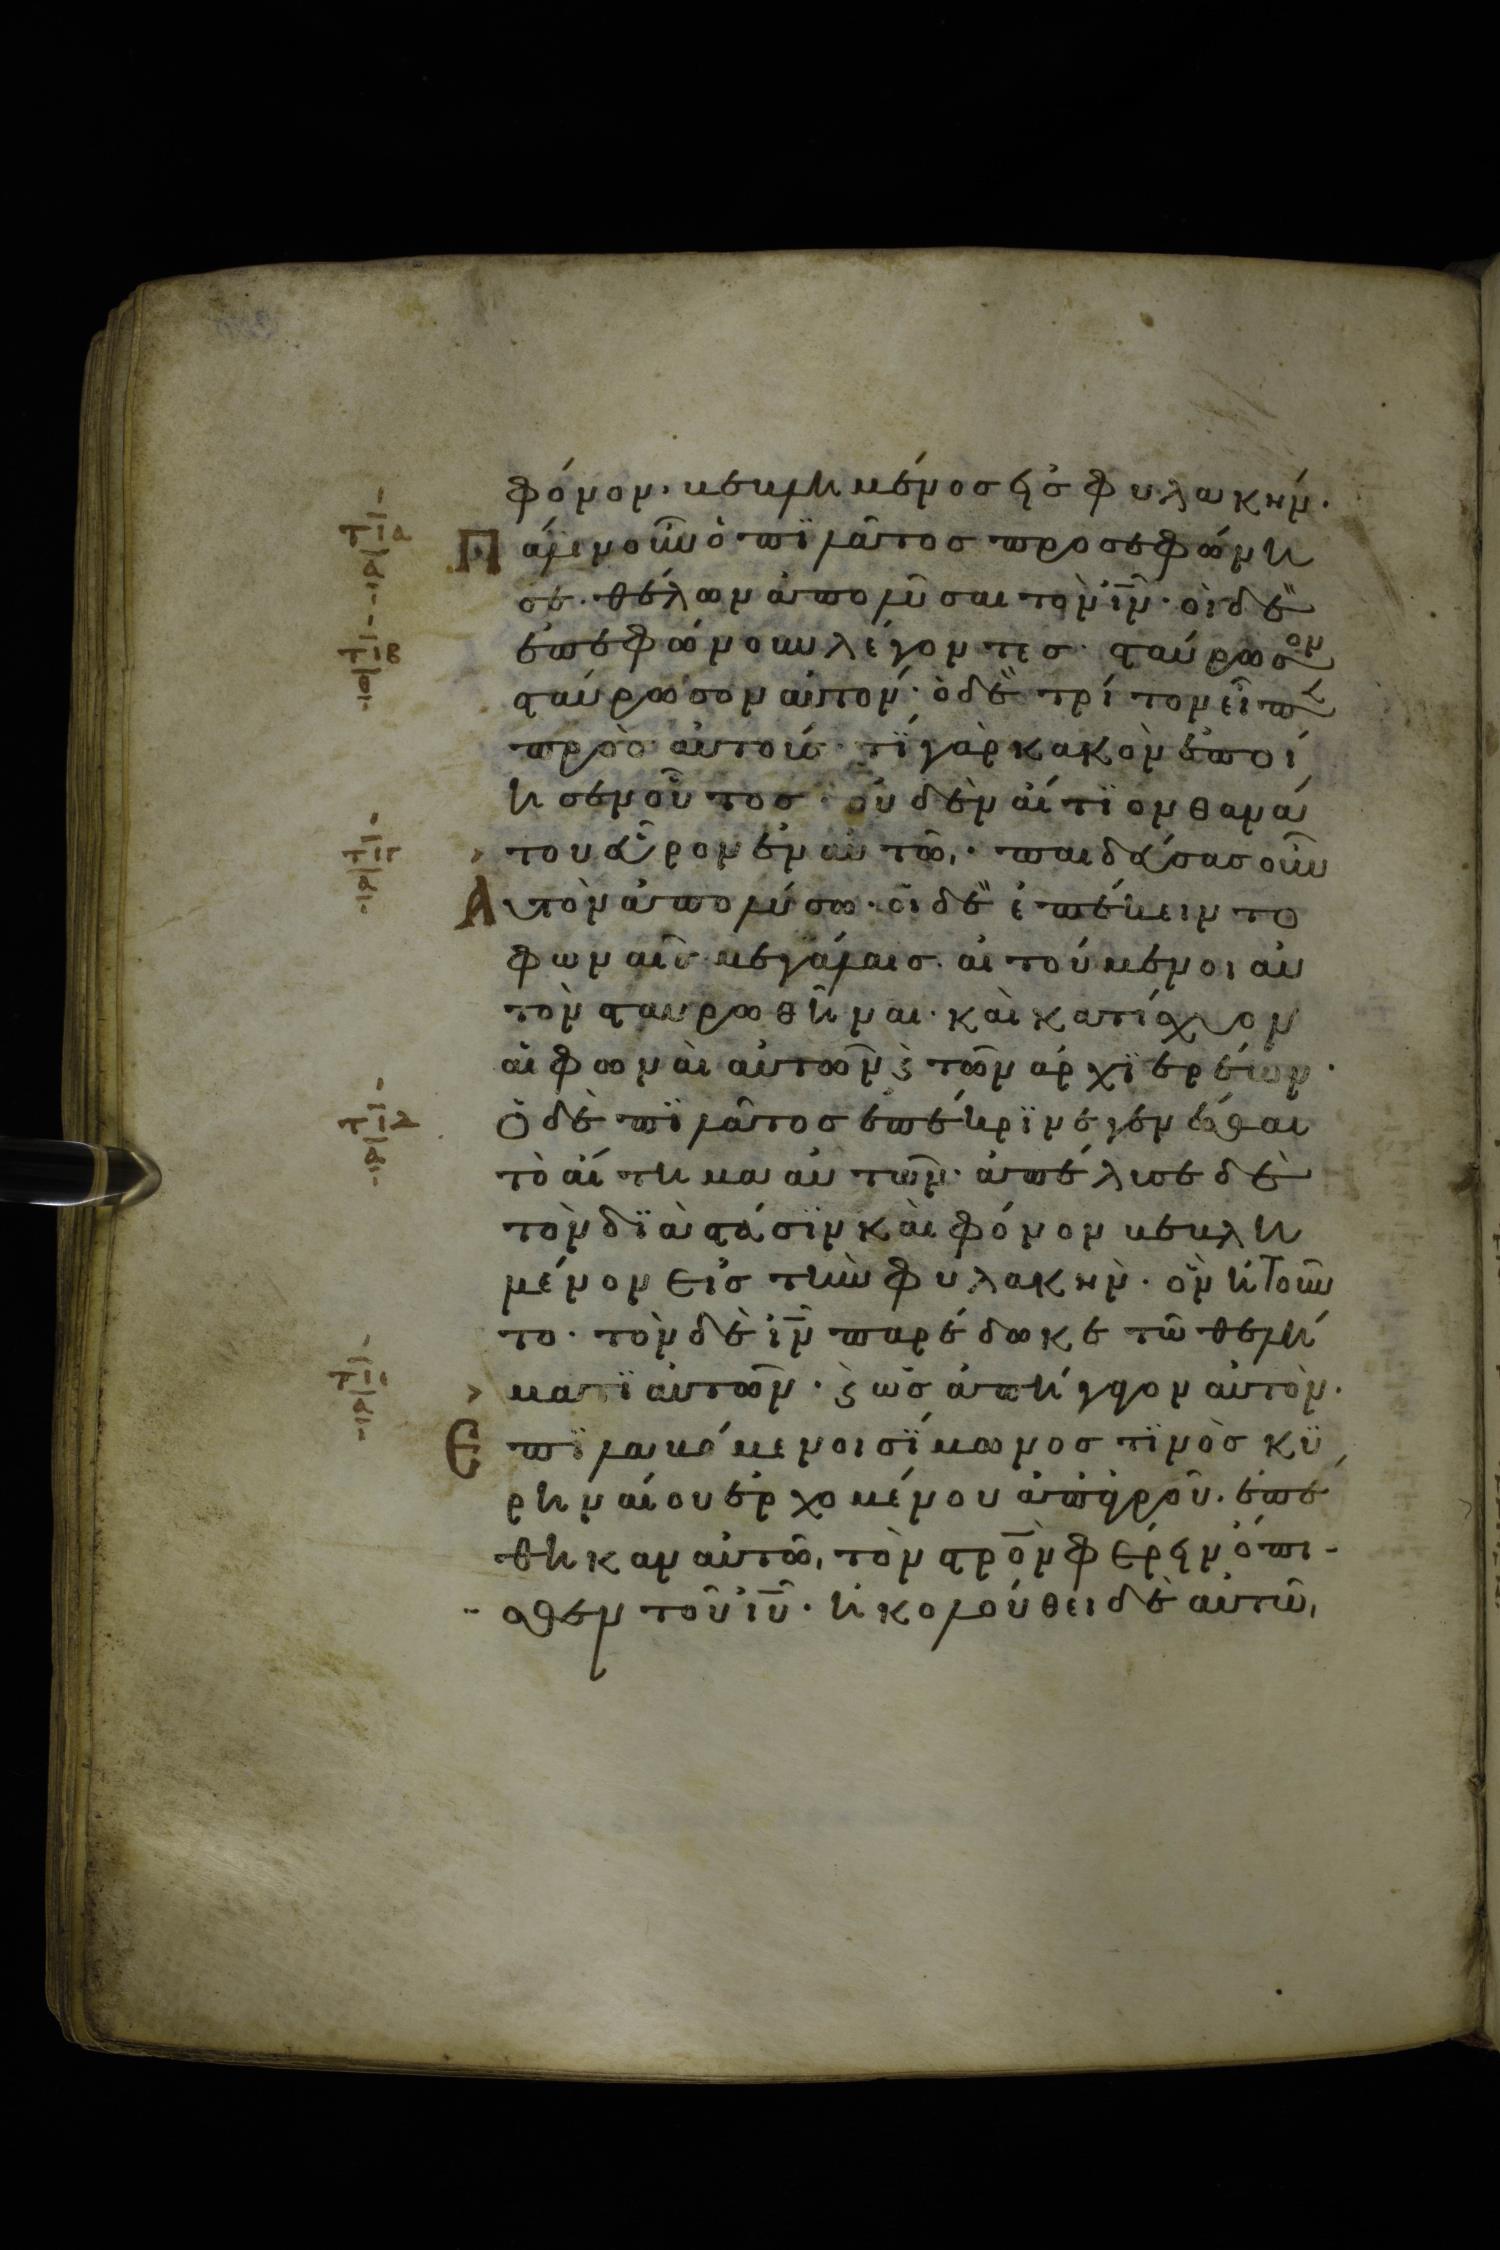 φόνον· βεβλημένος εἰς φυλακήν·
Πάλιν οὖν ὁ πϊλᾶτος προσεφώνη
σε· θέλων ἀπολῦσαι τὸν ἰν̅· οἱ δὲ
ἐπεφώνουν λέγοντες· σταύρωσον
σταύρωσον αὐτόν· ὁ δὲ τρίτον εἶπε
πρὸς αὐτούς· τϊ γὰρ κακὸν ἐποί
ησεν οὗτος· οὐδὲν αἴτϊον θανά
του εὗρον ἐν αὐτῶ· παιδεύσας οὖν
Αὐτὸν ἀπολύσω· οἱ δὲ ἐπέκειντο
φωναῖς μεγάλαις· αἰτούμενοι αὐ
τὸν σταυρωθῆναι· καὶ κατίσχυον
αἱ φωναὶ αὐτῶν ϗ τῶν ἀρχϊερέων·
Ὁ δὲ πϊλᾶτος ἐπέκρϊνε γενέσθαι
τὸ αἴτημα αὐτῶν· ἀπέλυσε δὲ
τὸν δϊὰ στάσϊν καὶ φόνον βεβλη
μένον εἰς τὴν φυλακὴν· ὃν ἠτοῦν
το· τὸν δὲ ἰν̅ παρέδωκε τῶ θελή
ματϊ αὐτῶν· ϗ ὡς ἀπήγαγον αὐτὸν·
Επϊλαβόμενοι σίμωνος τϊνὸς κϋ
ρηναίου ἐρχομένου ἀπ' ἀγροῦ· ἐπέ
θηκαν αὐτῶ, τὸν στρο̅ν φέρειν ὄπι-
σθεν τοῦ ἰυ̅· ἠκολούθει δὲ αὐτῶ,